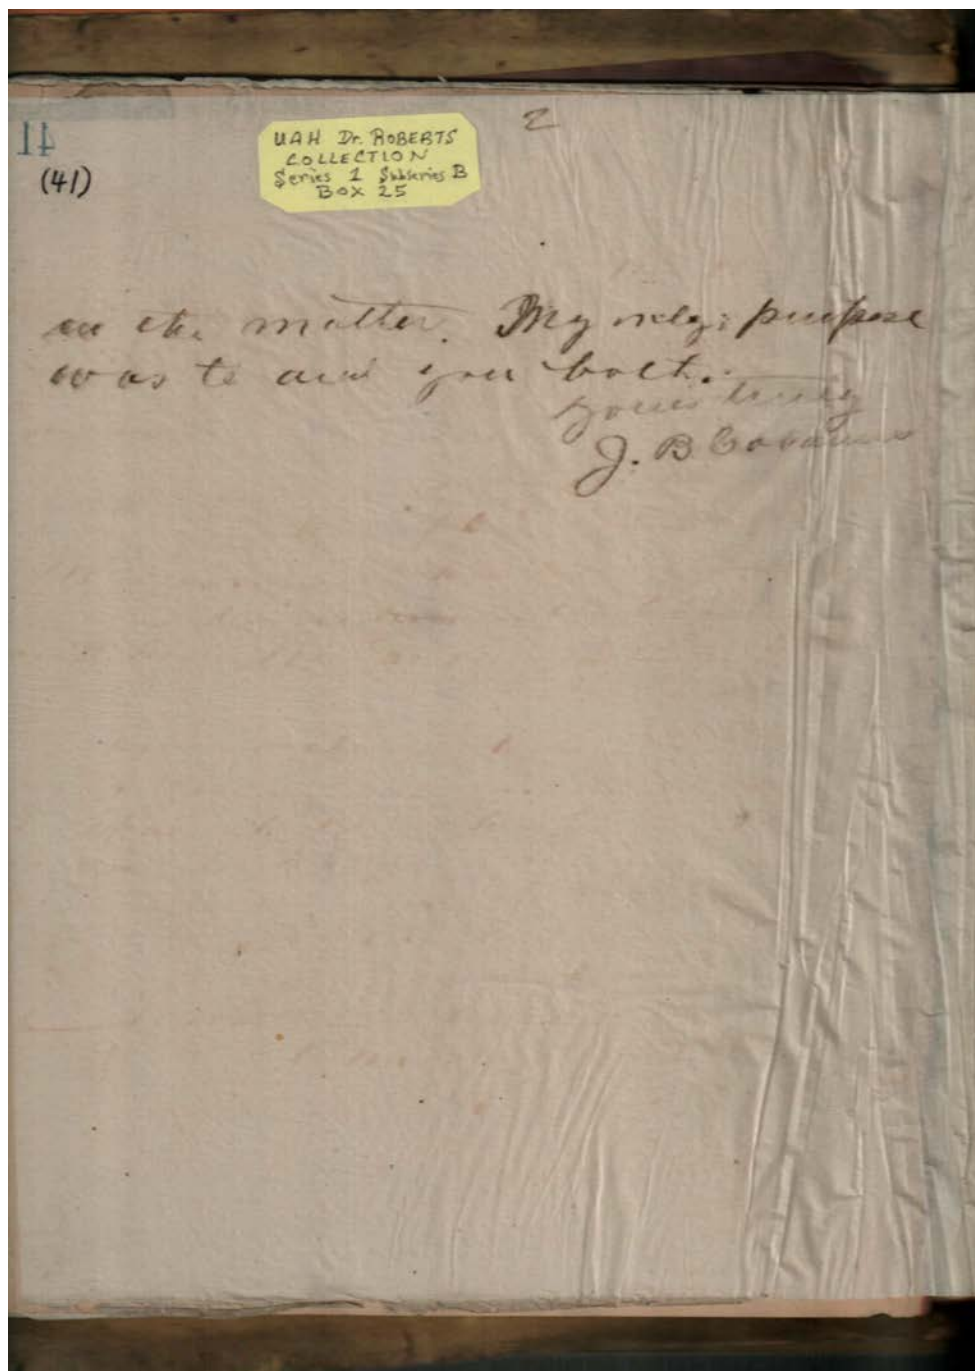 41
(41)
UAH Dr. ROBERTS
COLLECTION
Series 1 Subseries B
BOX 25
2
in the matter. My only purpose
was to aid you both.
Yours truly
J. B.